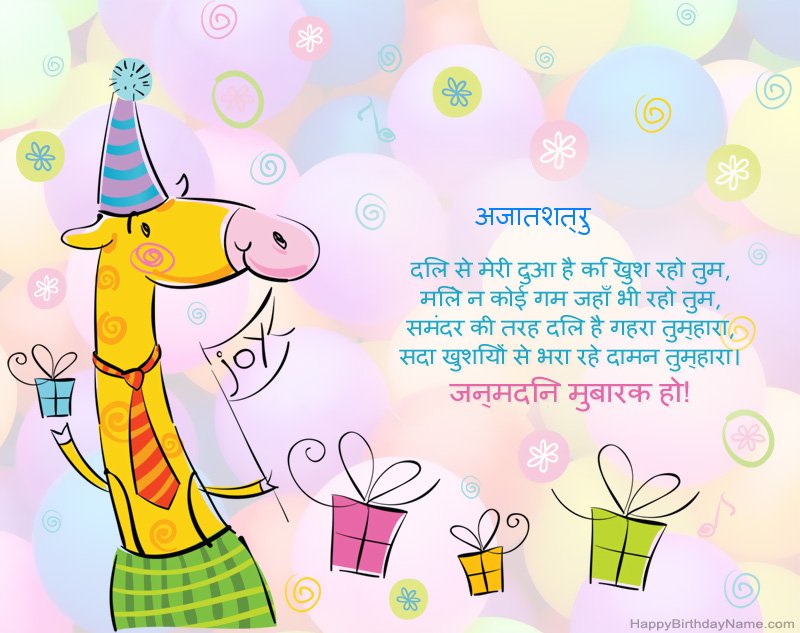 अजातशत्रु
दिल से मेरी दुआ है कि खुश रहो तुम,
मिले न कोई गम जहाँ भी रहो तुम,
समंदर की तरह दिल है गहरा तुम्हारा,
सदा खुशियों से भरा रहे दामन तुम्हारा।
जन्मदिन मुबारक हो!
joy
HappyBirthdayName.com